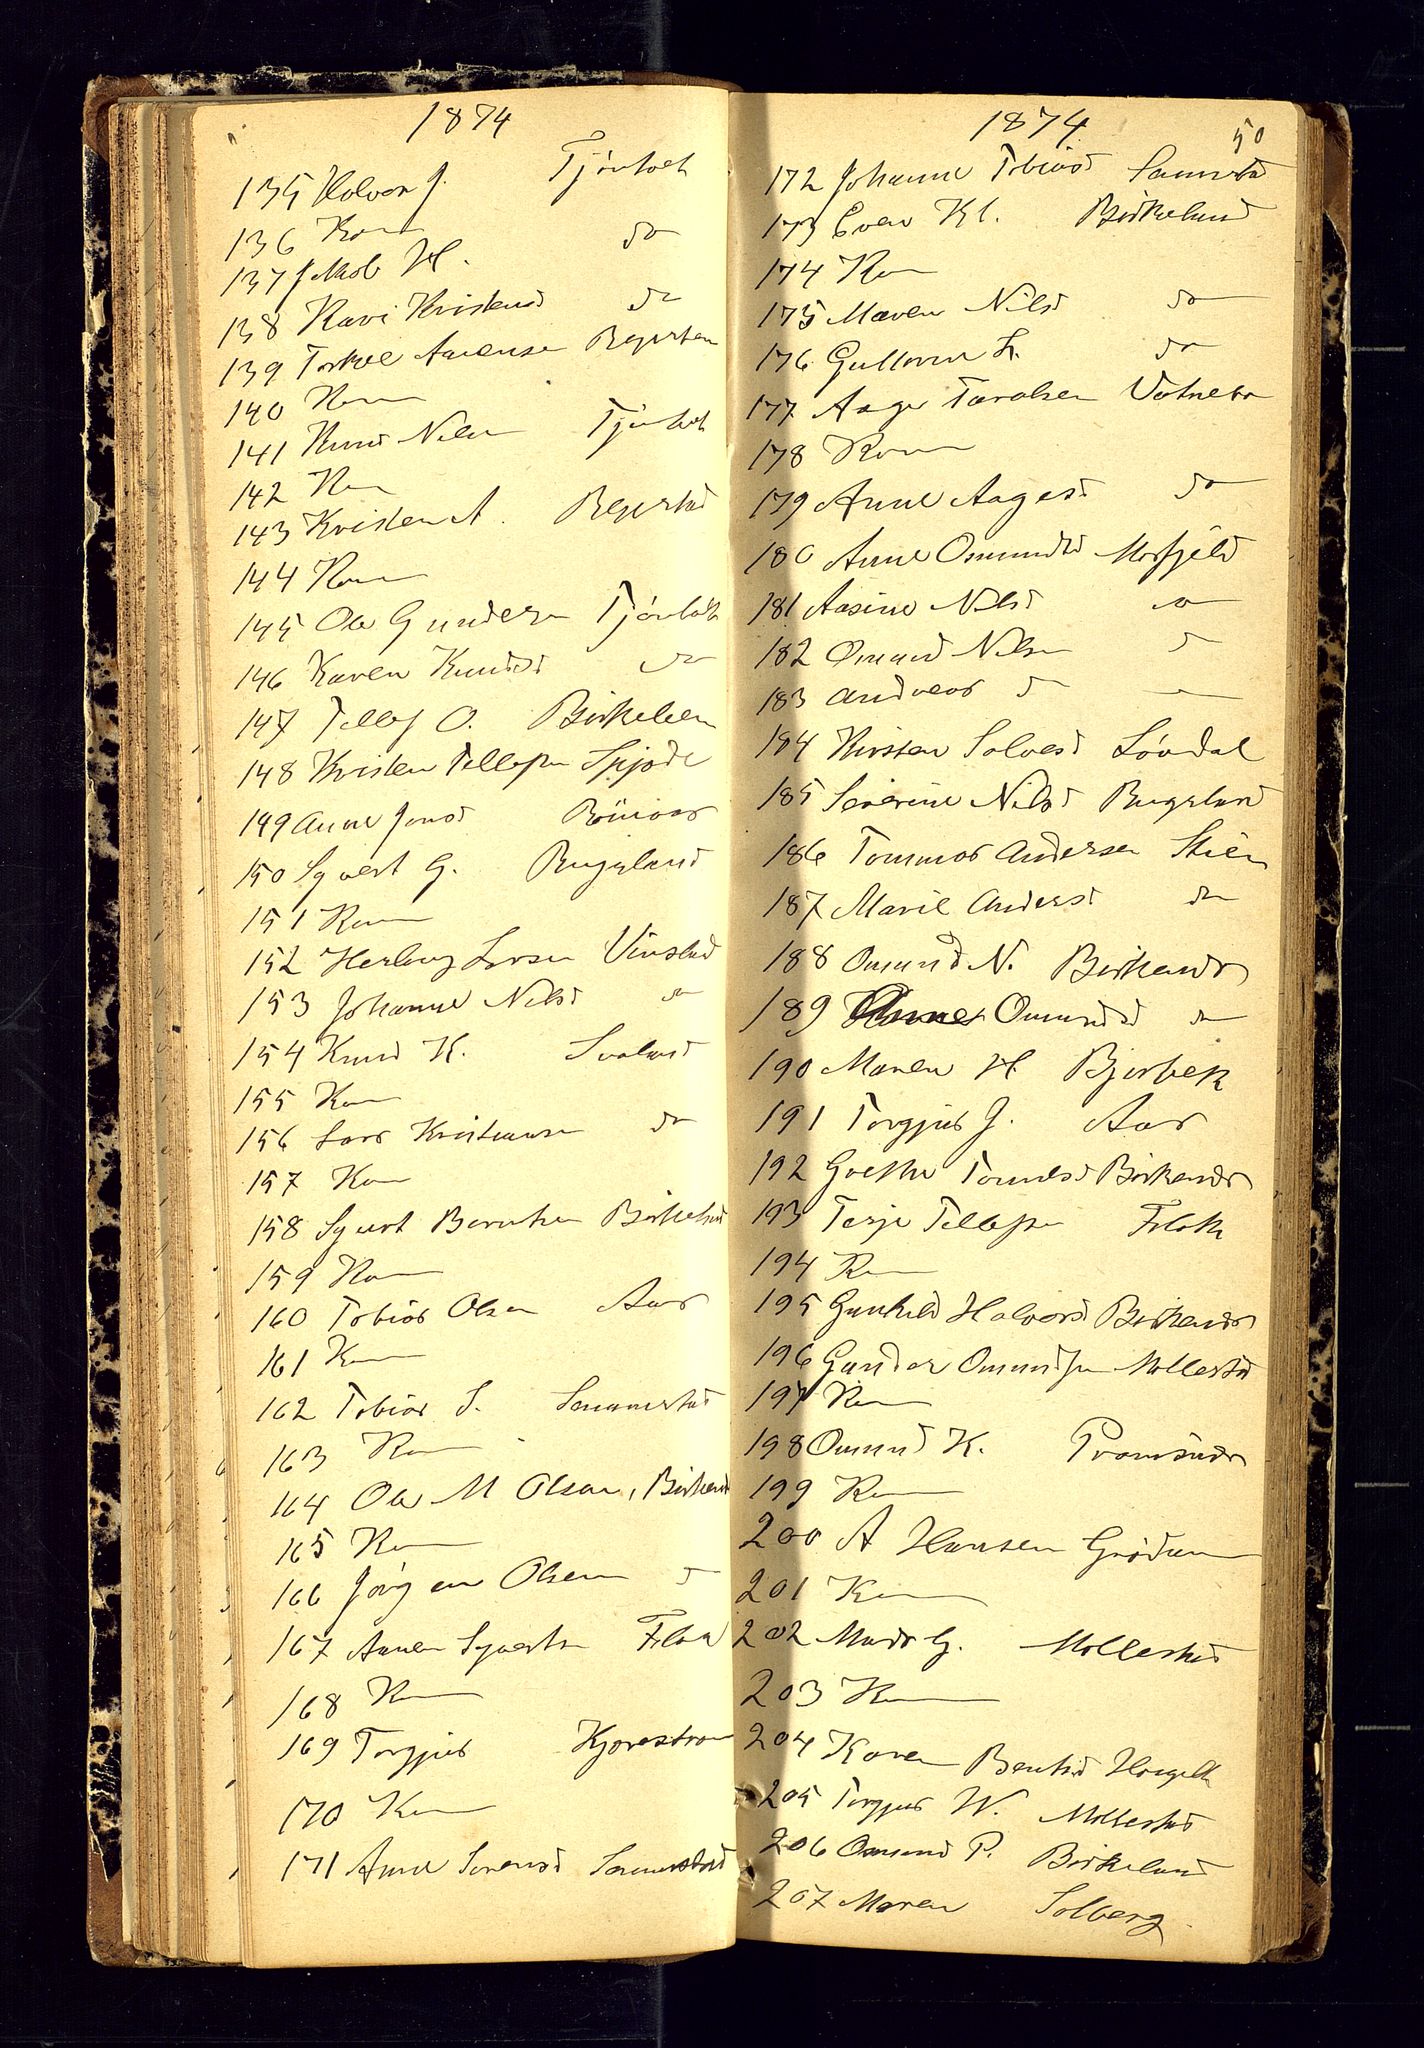 1874
135 Halvor J. Tjönholt
136 Kone
137 Jakob H. do
138 Kari Kristensd do
139 Torkel Aanensen
140 Kone
141 Knud Nilsen Tjönholt
142 Kone
143 Kristen A.
144 Kone
145 Ole Gundersen Tjönholt
146 Karen Knudsd do
147 Tellef O. Birkeland
148 Kristen Tellefsen
149 Anne Jensd
150 Syvert G. Rugsland
151 Kone
152 Herberg Larsen Vinstad
153 Johanne Nilsd do
154 Knud K. Svaland
155 Kone
156 Lars Kristiansen do
157 Kone
158 Syvert Berntsen Birkeland
159 Kone
160 Tobias Olsen Aas
161 Kone
162 Tobias S. Senumstad
163 Kone
164 Ole M Olsen, Birkenes
165 Kone
166 Jörgen Olsen do
167 Aanen Syvertsen Flak
168 Kone
169 Torgjus Kjærestrøm
170 Kone
171 Anne Sorensd Senumstad
1874 50
172 Johanne Tobiasd Senumstad
173 Even Kl. Birkeland
174 Kone
175 Maren Nilsd do
176 Guttorm L. do
177 Aage Taralsen
178 Kone
179 Anne Aagesd do
180 Anne Osmundsd Mosfjeld
181 Aasine Nilsd do
182 Osmund Nilsen do
183 Andreas do do
184 Kirsten Salvesd Lövdal
185 Severine Nilsd Rugsland
186 Tommas Andersen Stien
187 Marie Andersd do
188 Osmund N. Birkenes
189 Anne Osmundsd do
190 Maren H Bjorbek
191 Torgjus J. Aas
192 Gvethe Tomesd Birkenes
193 Terje Tellefsen Flak
194 Kone
195 Gunhild Halvorsd Birkenes
196 Gunder Osmundsen Mollestad
197 Kone
198 Osmund K.
199 Kone
200 A Hansen Grödum
201 Kone
202 Mads G. Mollestad
203 Kone
204 Karen Bentsd
205 Torgjus W. Mollestad
206 Osmund P. Birkeland
207 Maren Solberg